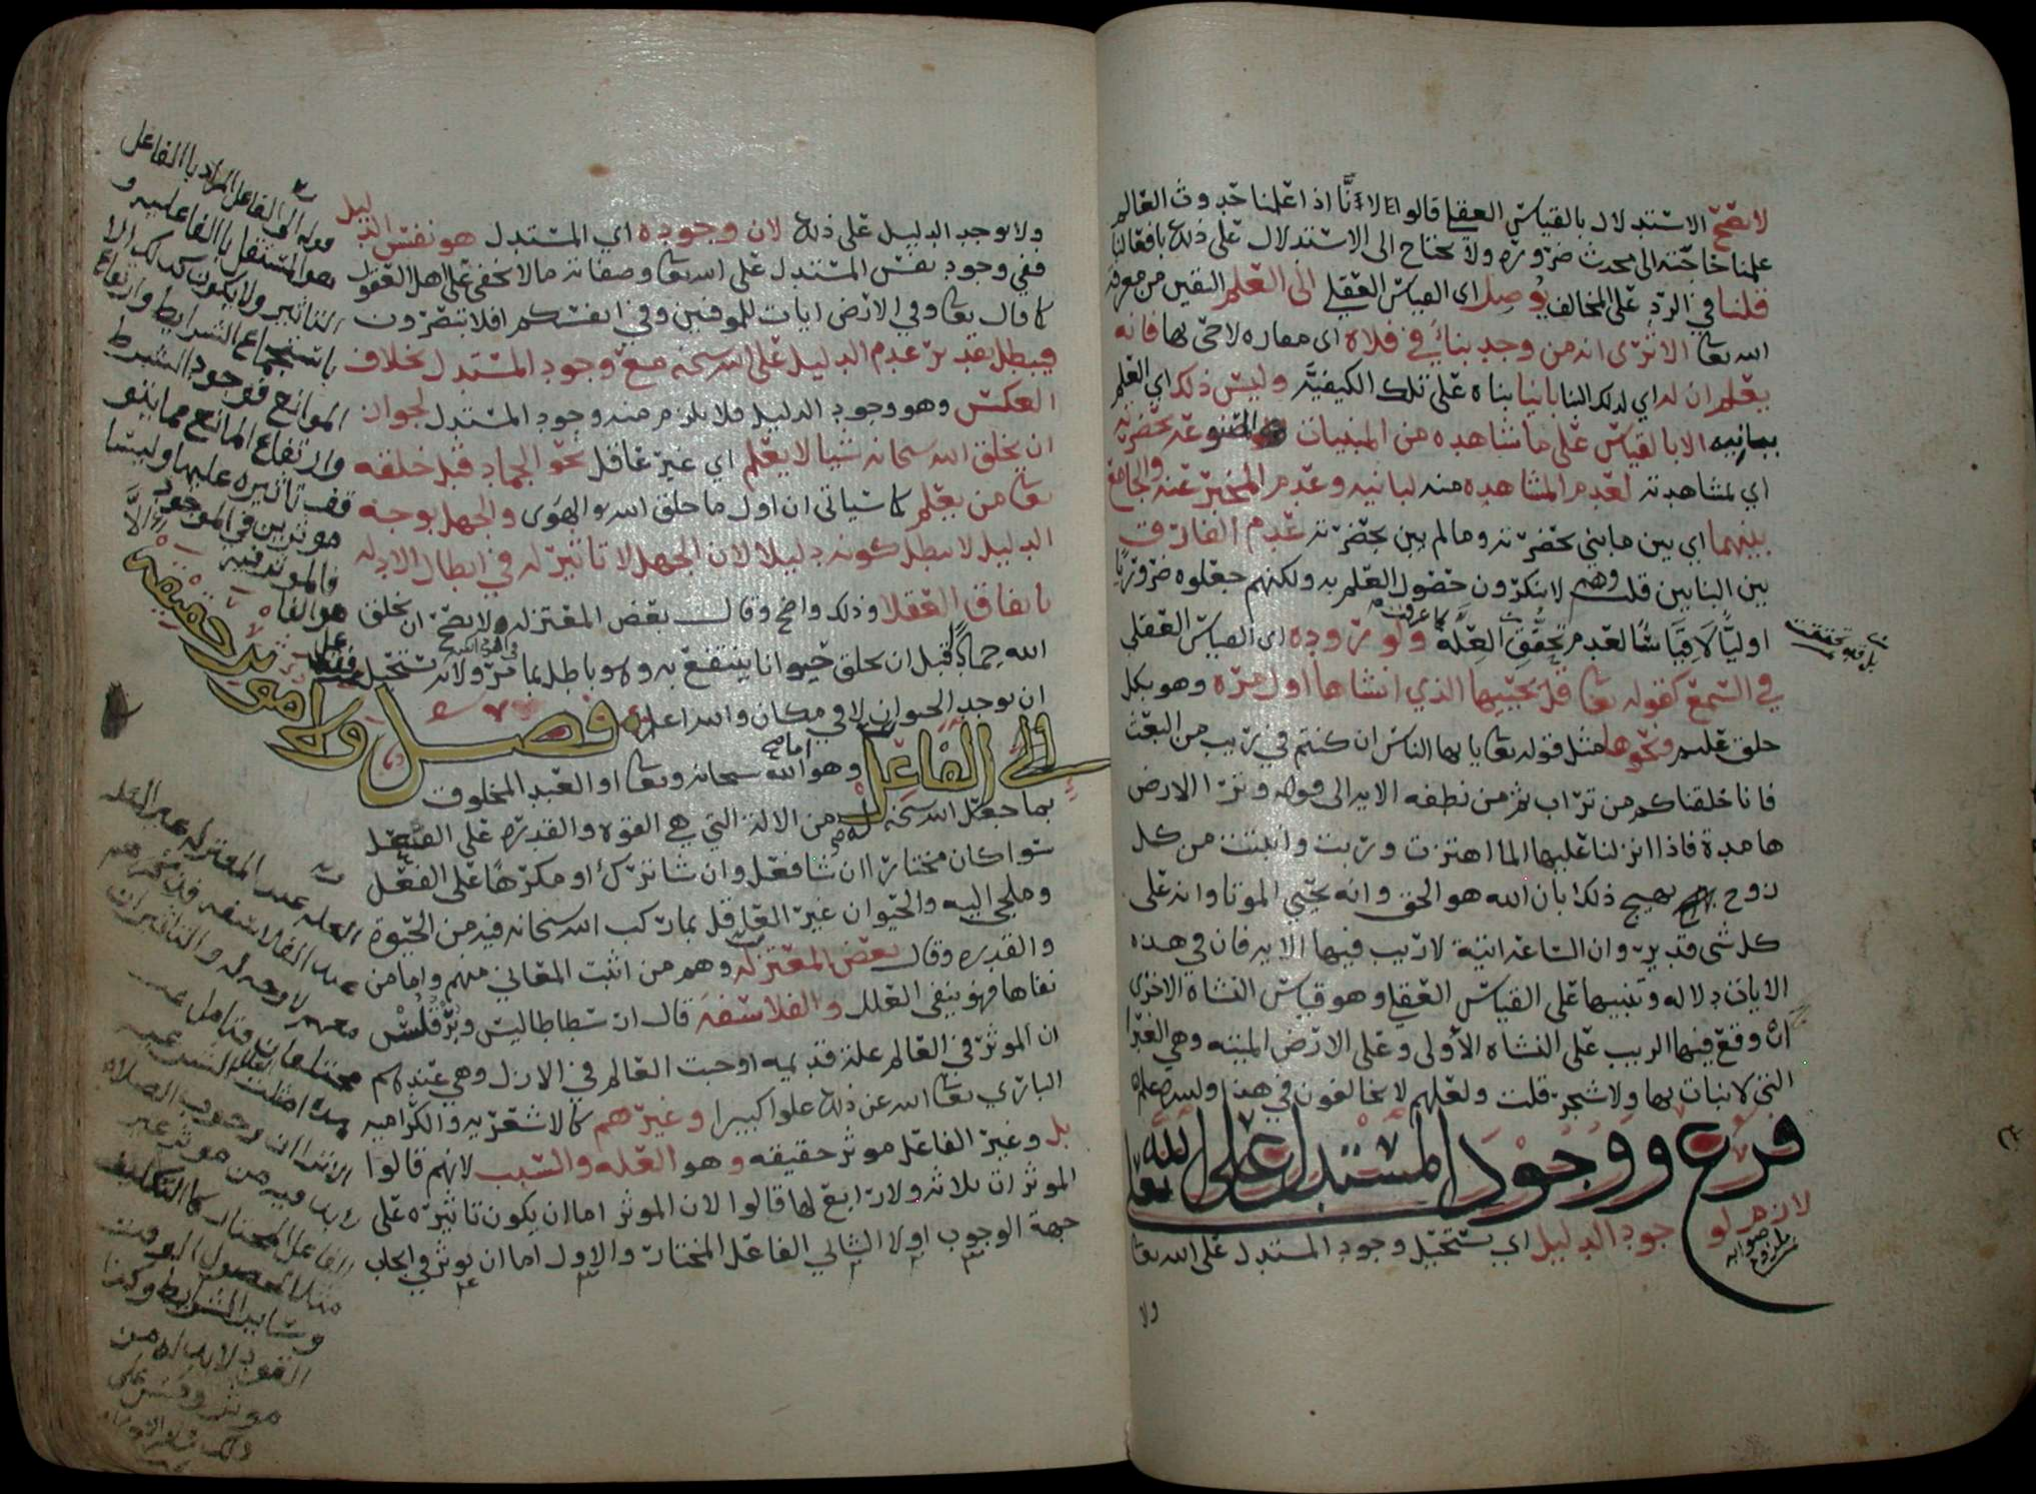 لا يصح الاستدلال بالقياس العقلي قالوا لانا اذا علمنا حدوث العالم
علمنا حاجته الى محدث ضرورة ولا نحتاج الى الاستدلال على ذلك بافعالنا
قلنا في الرد على المخالف يوصل اى القياس العقلي الى العلم اليقين من معرفة
الله تعا الا ترى ان من وجد بنائً في فلاة اى مفازه لا حى بها فانه
يعلم ان له اي لذلك البنا بانيا بناه على تلك الكيفية وليس ذلك اي العلم
ببانيه الا بالقياس على ما شاهده من المبنيات المصنوعة بحضرته
اي لمشاهدته لعدم المشاهده منه لبانيه وعدم المخبر عنه والجامع
بينهما اي بين ما بني بحضرته وما لم يبن بحضرته عدم الفارق
بين البنايين قلت وهم لا ينكرون حصول العلم به ولكنهم جعلوه ضروريًا
اوليًا لا قياسًا لعدم تحقق العلة كما عرفت ولوروده اى القياس العقلي
بل قد تحققت
في السمع كقوله تعا قل يحييها الذي انشاها اول مرة وهو بكل
خلق عليم ونحوها مثل قوله تعا يا يها الناس ان كنتم في ريب من البعث
فانا خلقناكم من تراب ثم من نطفه الايه الى قوله وترا الارض
هامدة فاذا انزلنا عليها الما اهتزت وربت وانبتت من كل
زوج بهيج ذلك بان الله هو الحق وانه يحيي الموتا وانه على
كل شى قدير وان الساعة اتية لا ريب فيها الايه فان في هذه
الايات دلاله وتنبيها على القياس العقلي وهو قياس النشاة الاخرى
ان وقع فيها الريب على النشاه الاولى وعلى الارض الميته وهي الغبرا
التي لا نبات بها ولا شجر قلت ولعلهم لا يخالفون في هذا والله اعلم
فرع ووجود المستدل على الله تعا
لازم لوجود الدليل اي يستحيل وجود المستدل على الله تعا
صوابه ملزوم
ولا
ولا يوجد الدليل على ذلك لان وجوده اي المستدل هو نفس الدليل
ففي وجود نفس المستدل على الله تعا وصفاته ما لا يخفى على اهل العقول
كما قال تعا وفي الارض ايات للموقنين وفي انفسكم افلا تبصرون
فيبطل تقدير عدم الدليل على الله سبحنه مع وجود المستدل بخلاف
العكس وهو وجود الدليل فلا يلزم منه وجود المستدل لجواز
ان يخلق الله سبحانه شيا لا يعلم اي غير عاقل نحو الجماد قبل خلقه
تعا من يعلم كما سياتى ان اول ما خلق الله الهوى والجهل بوجه
الدليل لا يبطل كونه دليلا لان الجهل لا تاثير له في ابطال الادله
باتفاق العقلا وذلك واضح وقال بعض المعتزله ولا يصح ان يخلق
الله جمادًا قبل ان يخلق حيوانا ينتفع به وهو باطل بما مر ولانه يستحيل
ان يوجد الحيوان لا في مكان والله اعلم
فصل ولا موثر حقيقة الا
الفاعل وهو اما الله سبحانه وتعا او العبد المخلوق
بما جعل الله سبحنه له من الالة التي هي القوه والقدره على الفعل
سوا كان مختارًا ان شا فعل وان شا ترك او مكرهًا على الفعل
وملجى اليه والحيوان غير العاقل بما ركب الله سبحانه فيه من الحيوة
والقدره وقال بعض المعتزله وهم من اثبت المعاني منهم واما من
نفاها فهو ينفي العلل والفلاسفه قال ارسطاطاليس وبرقلس
ان الموثر في العالم علة قديمه اوجبت العالم في الازل وهي عندهم
الباري تعا الله عن ذلك علوا كبيرا وغيرهم كالاشعريه والكراميه
بل وغير الفاعل موثر حقيقه وهو العله والسبب لانهم قالوا
الموثرات ثلاثه ولا رابع لها قالوا لان الموثر اما ان يكون تاثيره على
جهة الوجوب اولا الثاني الفاعل المختار والاول اما ان يوثر في ايجاب
قوله الا الفاعل المراد بالفاعل
هو المستقل بالفاعليه و
التاثير ولا يكون كذلك الا
باستجماع الشرايط وارتفاع
الموانع فوجود الشرط
وارتفاع المانع مما يتو
قف تاثيره عليها وليستا
موثرين في الموجود
فالموثر فيه
هو الفا
عل
العله عند المعتزله غير العله
عند الفلاسفه
الاترى ان وجوب الصلاة
لا بد فيه من موثر غير
الفاعل المختار كالتكليف
مثلا لحصول الوقت
وساير الشرايط وكذا
القود لا بد له من
موثر وقس على
ذلك